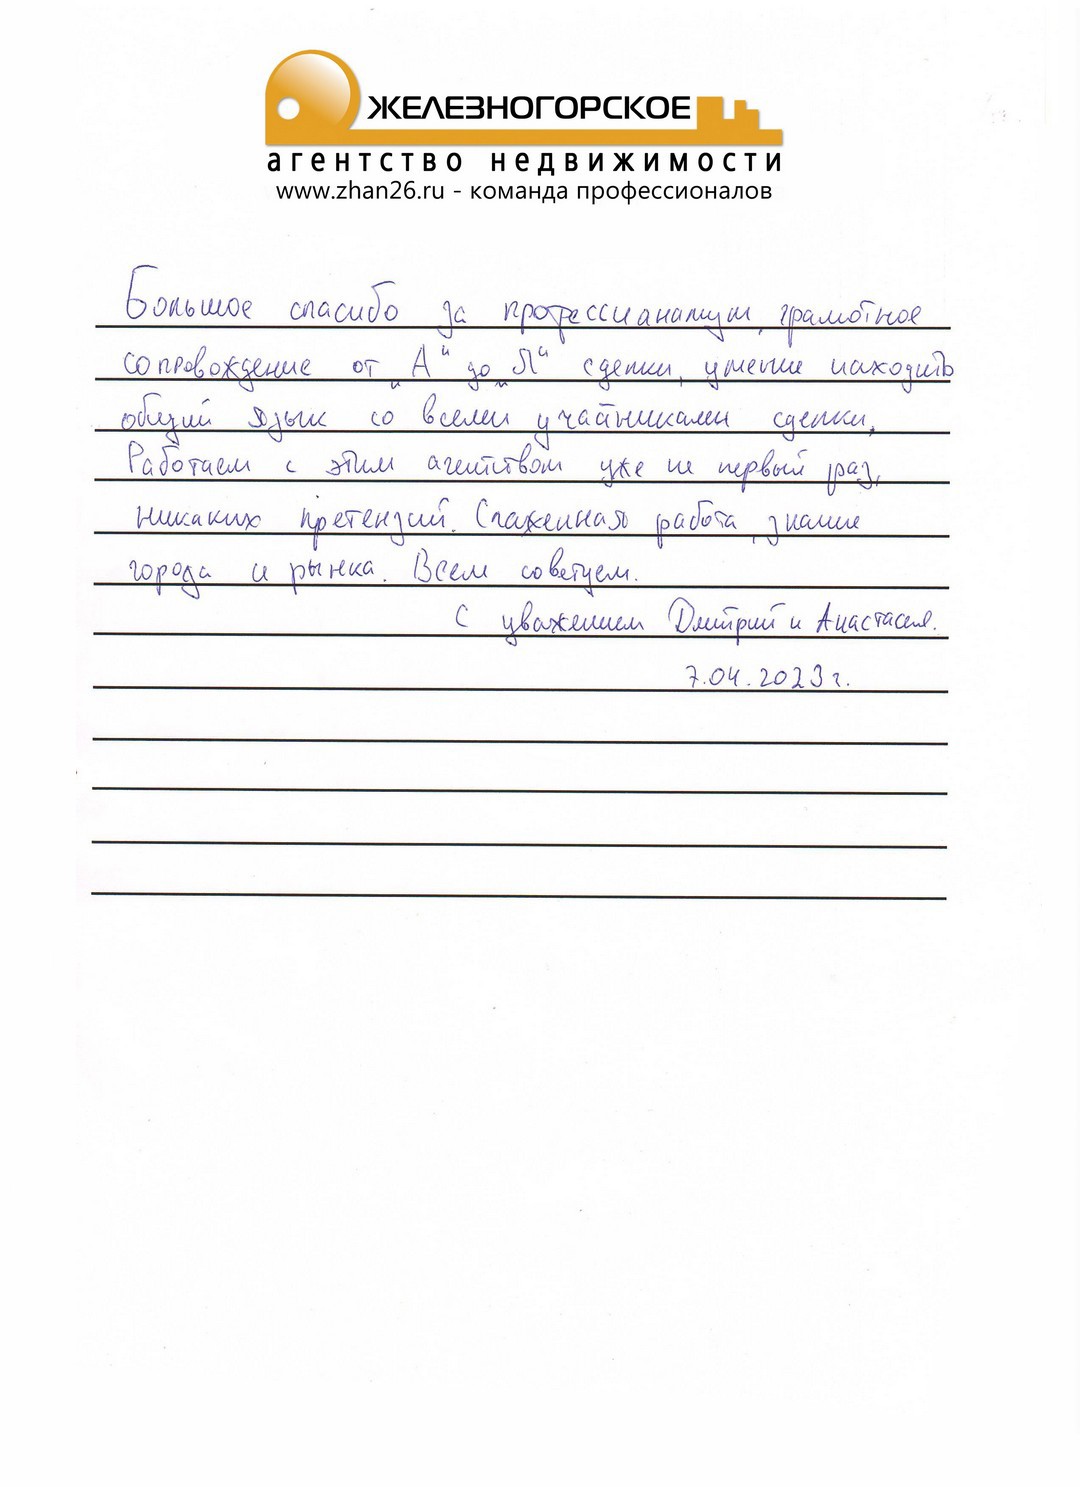 ЖЕЛЕЗНОГОРСКОЕ
агентство недвижимости
www.zhan26.ru - команда профессионалов
Большое спасибо за профессианализм, грамотное
сопровождение от „А“ до „Я“ сделки, умение находить
общий язык со всеми учайниками сделки.
Работаем с этим агентством уже не первый раз,
никаких претензий. Слаженная работа, знание
города и рынка. Всем советуем.
С уважением Дмитрий и Анастасия.
7.04.2023 г.